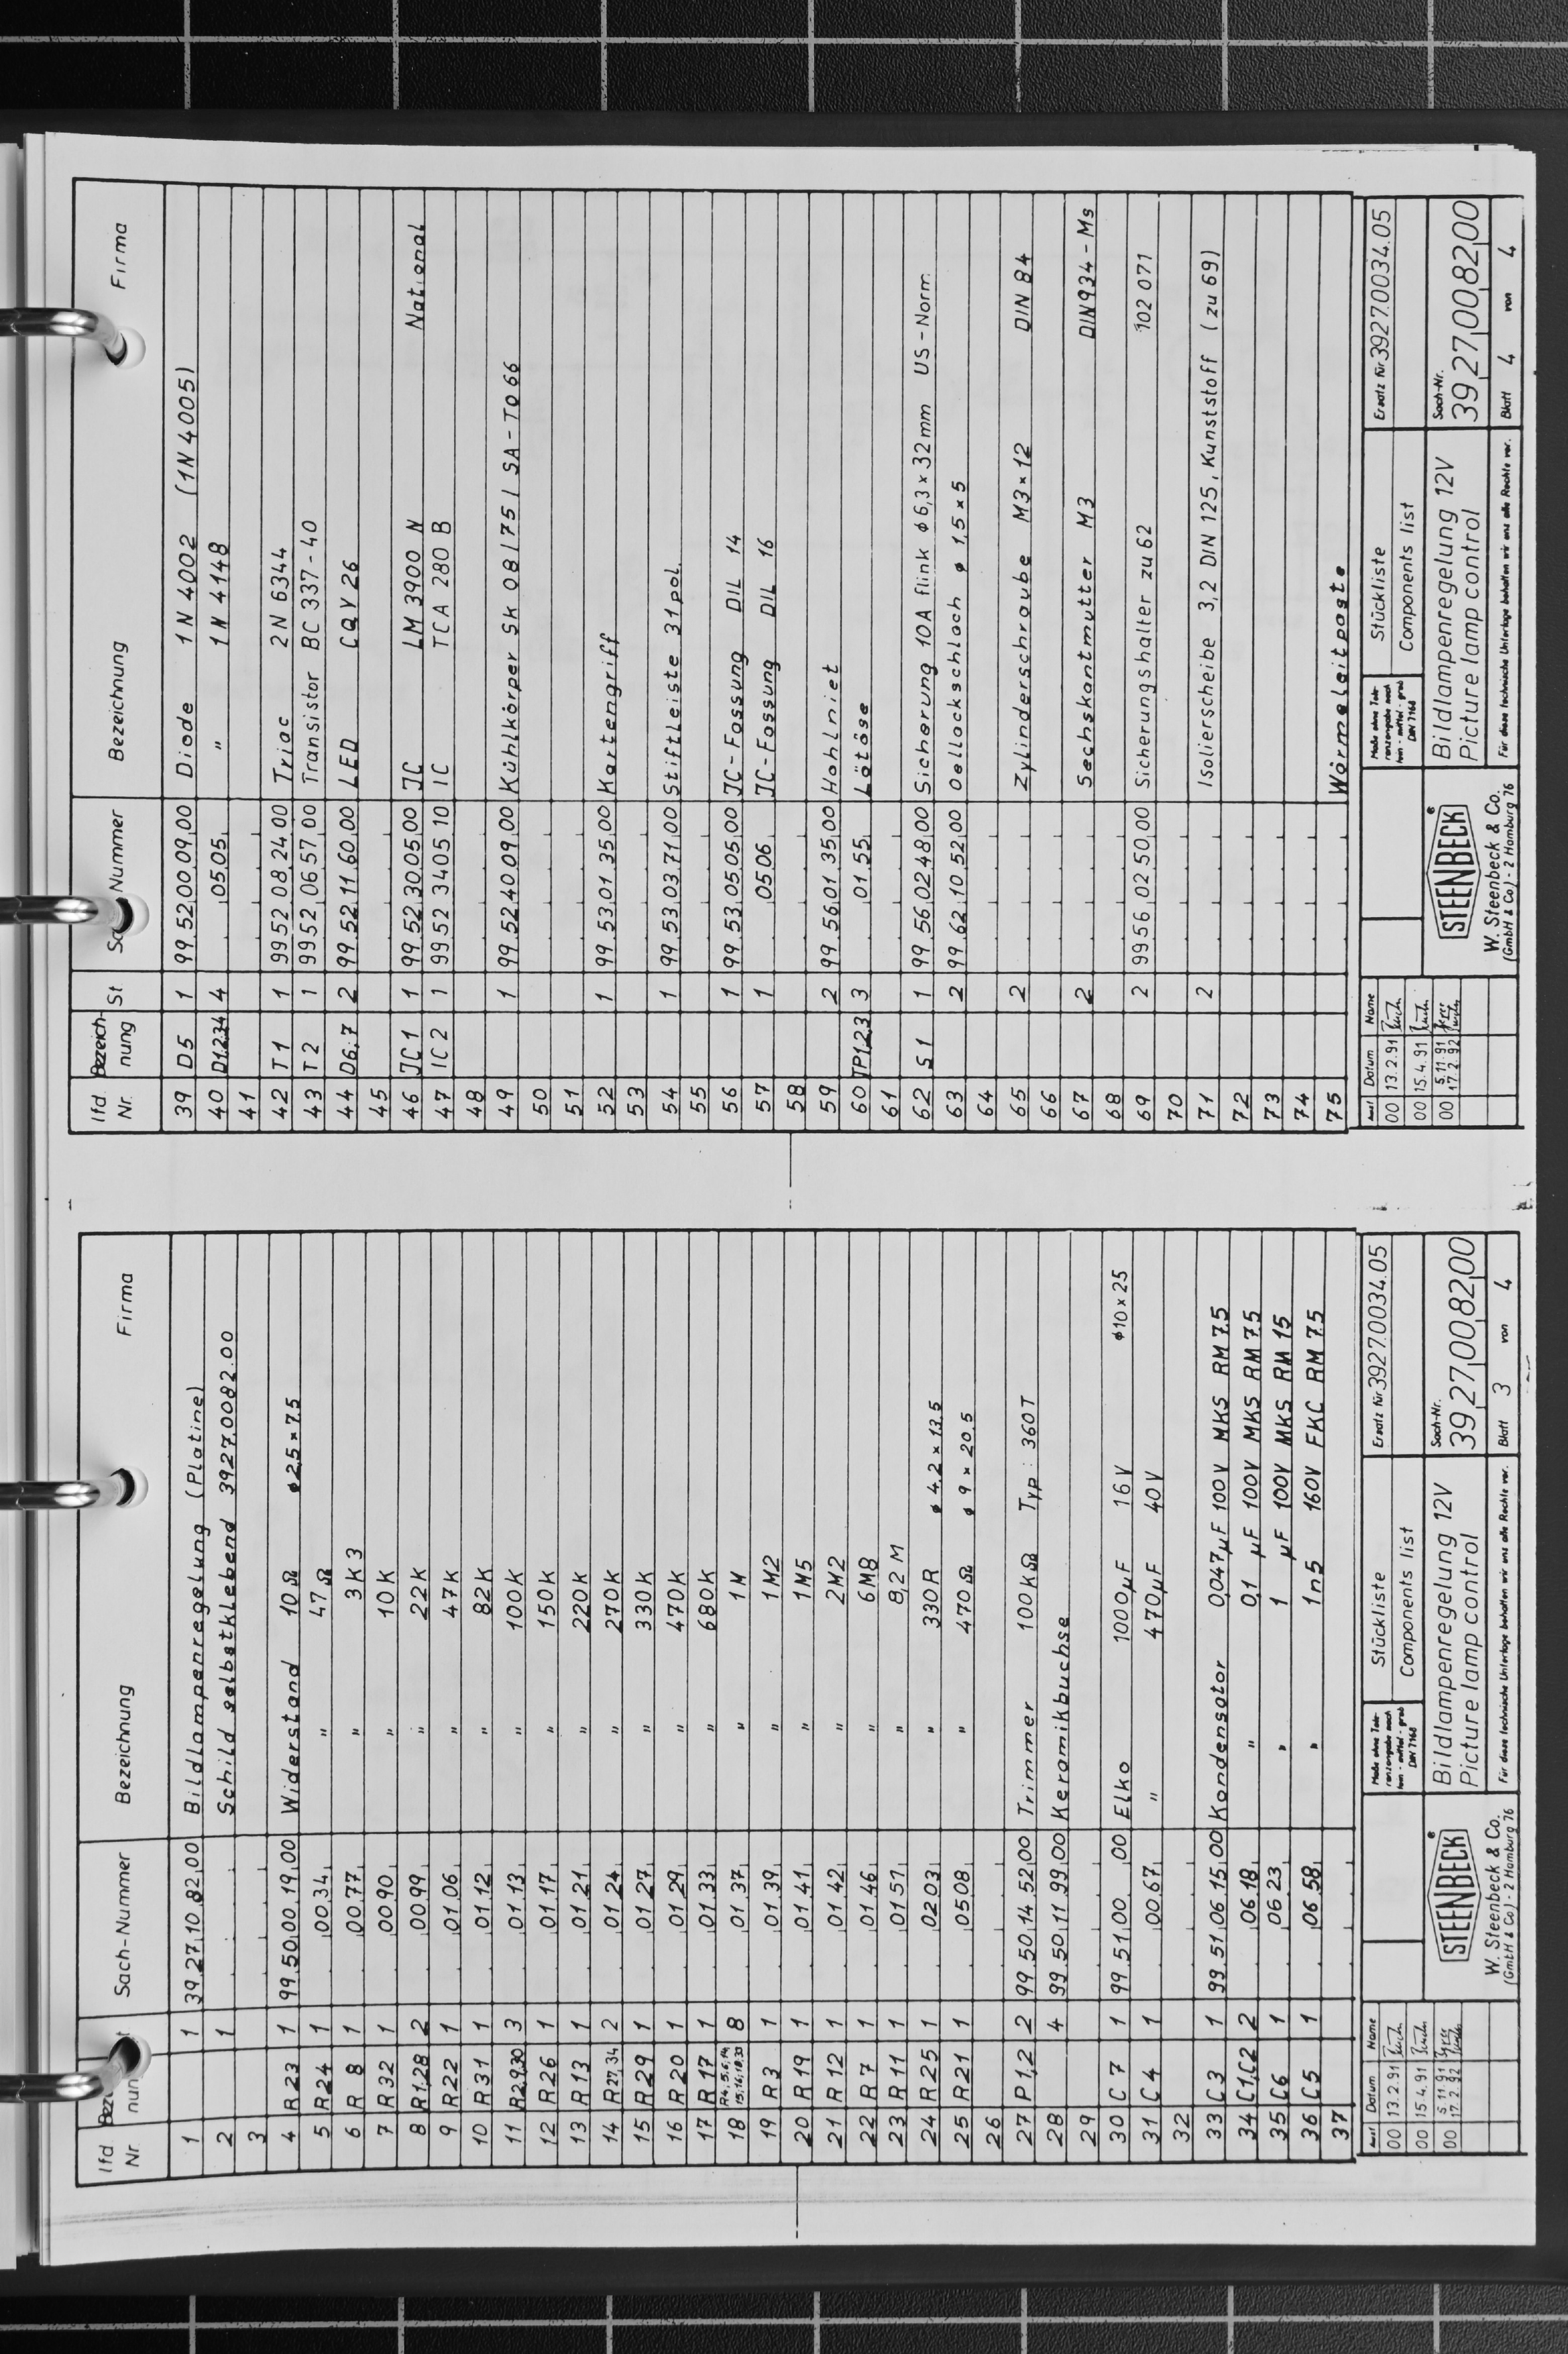 lfd. Nr. Bezeichnung Sach-Nummer Bezeichnung Firma
1 1 39.27.10.82.00 Bildlampenregelung (Platine)
2 1 Schild selbstklebend 3927.0082.00
3
4 R 23 1 99.50.00.19.00 Widerstand 10 Ω ø 2,5 × 7,5
5 R 24 1 00.34 " 47 Ω
6 R 8 1 00.77 " 3 K 3
7 R 32 1 00.90 " 10 K
8 R1,28 2 00.99 " 22 K
9 R 22 1 01.06 " 47 K
10 R 31 1 01.12 " 82 K
11 R2,9,30 3 01.13 " 100 K
12 R 26 1 01.17 " 150 K
13 R 13 1 01.21 " 220 K
14 R27,34 2 01.24 " 270 K
15 R 29 1 01.27 " 330 K
16 R 20 1 01.29 " 470 K
17 R 17 1 01.33 " 680 K
18 R4,5,6,14, 15,16,18,33 8 01.37 " 1 M
19 R 3 1 01.39 " 1 M2
20 R 19 1 01.41 " 1 M5
21 R 12 1 01.42 " 2 M2
22 R 7 1 01.46 " 6 M8
23 R 11 1 01.51 " 8,2 M
24 R 25 1 02.03 " 330 R ø 4,2 × 13,5
25 R 21 1 05.08 " 470 Ω ø 9 × 20,5
26
27 P 1,2 2 99.50.14.52.00 Trimmer 100 KΩ Typ: 360 T
28 4 99.50.11.99.00 Keramikbuchse
29
30 C 7 1 99.51.00 .00 Elko 1000 µF 16 V ø 10 × 25
31 C 4 1 00.67 " 470 µF 40 V
32
33 C 3 1 99.51.06.15.00 Kondensator 0,047 µF 100V MKS RM 7.5
34 C1,C2 2 06.18 " 0,1 µF 100V MKS RM 7.5
35 C6 1 06.23 " 1 µF 100V MKS RM 15
36 C5 1 06.58 " 1n5 160V FKC RM 7.5
37
Ausf. Datum Name
00 13.2.91
00 15.4.91
00 5.11.91
17.2.92
STEENBECK ®
W. Steenbeck & Co.
(GmbH & Co) - 2 Hamburg 76
Maße ohne Toleranzangabe nach fein - mittel - grob DIN 7168
Stückliste
Components list
Ersatz für 3927.0034.05
Bildlampenregelung 12V
Picture lamp control
Sach-Nr.
39.27.00.82.00
Für diese technische Unterlage behalten wir uns alle Rechte vor.
Blatt 3 von 4
lfd. Nr. Bezeichnung St Nummer Bezeichnung Firma
39 D 5 1 99.52.00.09.00 Diode 1 N 4002 (1N 4005)
40 D1,2,3,4 4 05.05 " 1 N 4148
41
42 T 1 1 99.52.08.24.00 Triac 2 N 6344
43 T 2 1 99.52.06.57.00 Transistor BC 337 - 40
44 D6,7 2 99.52.11.60.00 LED CQV 26
45
46 IC 1 1 99.52.30.05.00 IC LM 3900 N National
47 IC 2 1 99.52.34.05.10 IC TCA 280 B
48
49 1 99.52.40.09.00 Kühlkörper SK 08 / 75 / SA - TO 66
50
51
52 1 99.53.01.35.00 Kartengriff
53
54 1 99.53.03.71.00 Stiftleiste 31 pol.
55
56 1 99.53.05.05.00 IC - Fassung DIL 14
57 1 05.06 IC - Fassung DIL 16
58
59 2 99.56.01.35.00 Hohlniet
60 TP1,2,3 3 01.55 Lötöse
61
62 S 1 1 99.56.02.48.00 Sicherung 10A flink ø 6,3 × 32 mm US - Norm.
63 2 99.62.10.52.00 Oellackschlach ø 1,5 × 5
64
65 2 Zylinderschraube M3 × 12 DIN 84
66
67 2 Sechskantmutter M3 DIN 934 - Ms
68
69 2 99.56.02.50.00 Sicherungshalter zu 62 102 071
70
71 2 Isolierscheibe 3,2 DIN 125, Kunststoff (zu 69)
72
73
74
75 Wärmeleitpaste
Ausf. Datum Name
00 13.2.91
00 15.4.91
00 5.11.91
17.2.92
STEENBECK ®
W. Steenbeck & Co.
(GmbH & Co) - 2 Hamburg 76
Maße ohne Toleranzangabe nach fein - mittel - grob DIN 7168
Stückliste
Components list
Ersatz für 3927.0034.05
Bildlampenregelung 12V
Picture lamp control
Sach-Nr.
39.27.00.82.00
Für diese technische Unterlage behalten wir uns alle Rechte vor.
Blatt 4 von 4